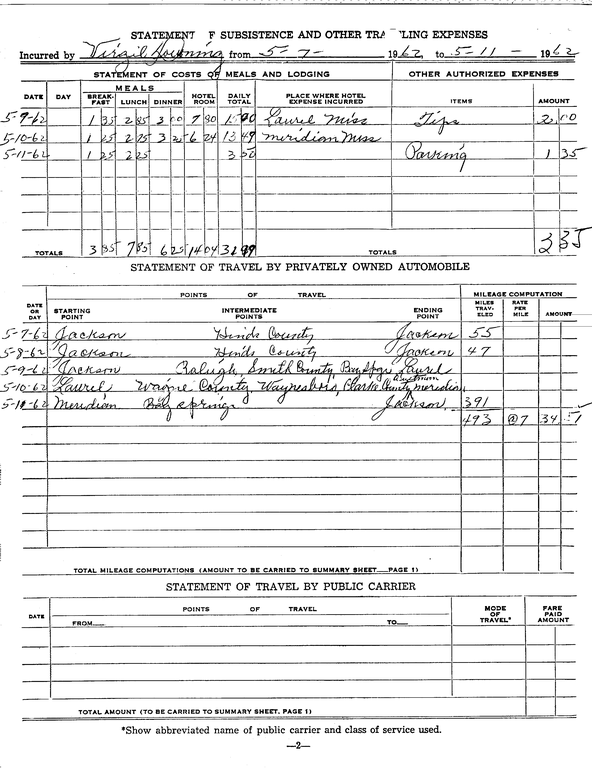 STATEMENT F SUBSISTENCE AND OTHER TRA LING EXPENSES
Incurred by Virgil Downing from 5-7- 1962, to 5-11- 1962
STATEMENT OF COSTS OF MEALS AND LODGING OTHER AUTHORIZED EXPENSES
DATE DAY MEALS BREAK-FAST LUNCH DINNER HOTEL ROOM DAILY TOTAL PLACE WHERE HOTEL EXPENSE INCURRED ITEMS AMOUNT
5-9-62 1 35 2 85 3 00 7 80 15 00 Laurel Miss Tips 2 00
5-10-62 1 25 2 75 3 25 6 24 13 49 Meridian Miss
5-11-62 1 25 2 25 3 50 Parking 1 35
TOTALS 3 85 7 85 6 25 14 04 31 99 TOTALS 3 35
STATEMENT OF TRAVEL BY PRIVATELY OWNED AUTOMOBILE
DATE OR DAY POINTS OF TRAVEL MILEAGE COMPUTATION
STARTING POINT INTERMEDIATE POINTS ENDING POINT MILES TRAV-ELED RATE PER MILE AMOUNT
5-7-62 Jackson Hinds County Jackson 55
5-8-62 Jackson Hinds County Jackson 47
5-9-62 Jackson Raleigh, Smith County, Bay Springs Laurel
5-10-62 Laurel Wayne County, Waynesboro, Clarke County, Quitman Meridian
5-11-62 Meridian Bay Springs Jackson 391
493 @7 34.51
TOTAL MILEAGE COMPUTATIONS (AMOUNT TO BE CARRIED TO SUMMARY SHEET PAGE 1)
STATEMENT OF TRAVEL BY PUBLIC CARRIER
DATE POINTS OF TRAVEL MODE OF TRAVEL* FARE PAID AMOUNT
FROM TO
TOTAL AMOUNT (TO BE CARRIED TO SUMMARY SHEET, PAGE 1)
*Show abbreviated name of public carrier and class of service used.
—2—